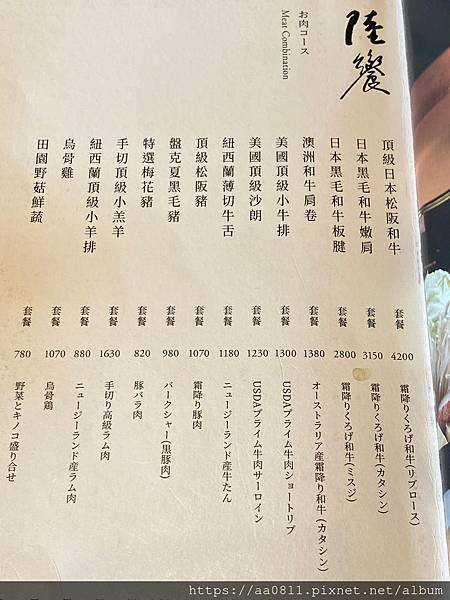 陸饗
お肉コース
Meat Combination
頂級日本松阪和牛 套餐 4200 霜降りくろげ和牛(リブロース)
日本黑毛和牛嫩肩 套餐 3150 霜降りくろげ和牛(カタシン)
日本黑毛和牛板腱 套餐 2800 霜降りくろげ和牛(ミスジ)
澳洲和牛肩卷 套餐 1380 オーストラリア産霜降り和牛(カタシン)
美國頂級小牛排 套餐 1300 USDAプライム牛肉ショートリブ
美國頂級沙朗 套餐 1230 USDAプライム牛肉サーロイン
紐西蘭薄切牛舌 套餐 1180 ニュージーランド産牛たん
頂級松阪豬 套餐 1070 霜降り豚肉
盤克夏黑毛豬 套餐 980 バークシャー(黒豚肉)
特選梅花豬 套餐 820 豚バラ肉
手切頂級小羔羊 套餐 1630 手切り高級ラム肉
紐西蘭頂級小羊排 套餐 880 ニュージーランド産ラム肉
烏骨雞 套餐 1070 烏骨鶏
田園野菇鮮蔬 套餐 780 野菜とキノコ盛り合せ
https://aa0811.pixnet.net/album